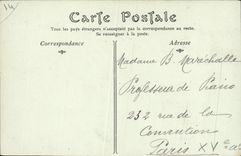 Carte Postale
Tous les pays étrangers n'acceptent pas la correspondance au recto.
Se renseigner à la poste.
Correspondance
Adresse
Madame B. Maréchalle
Professeur de Piano
252 rue de la
Convention
Paris XVe